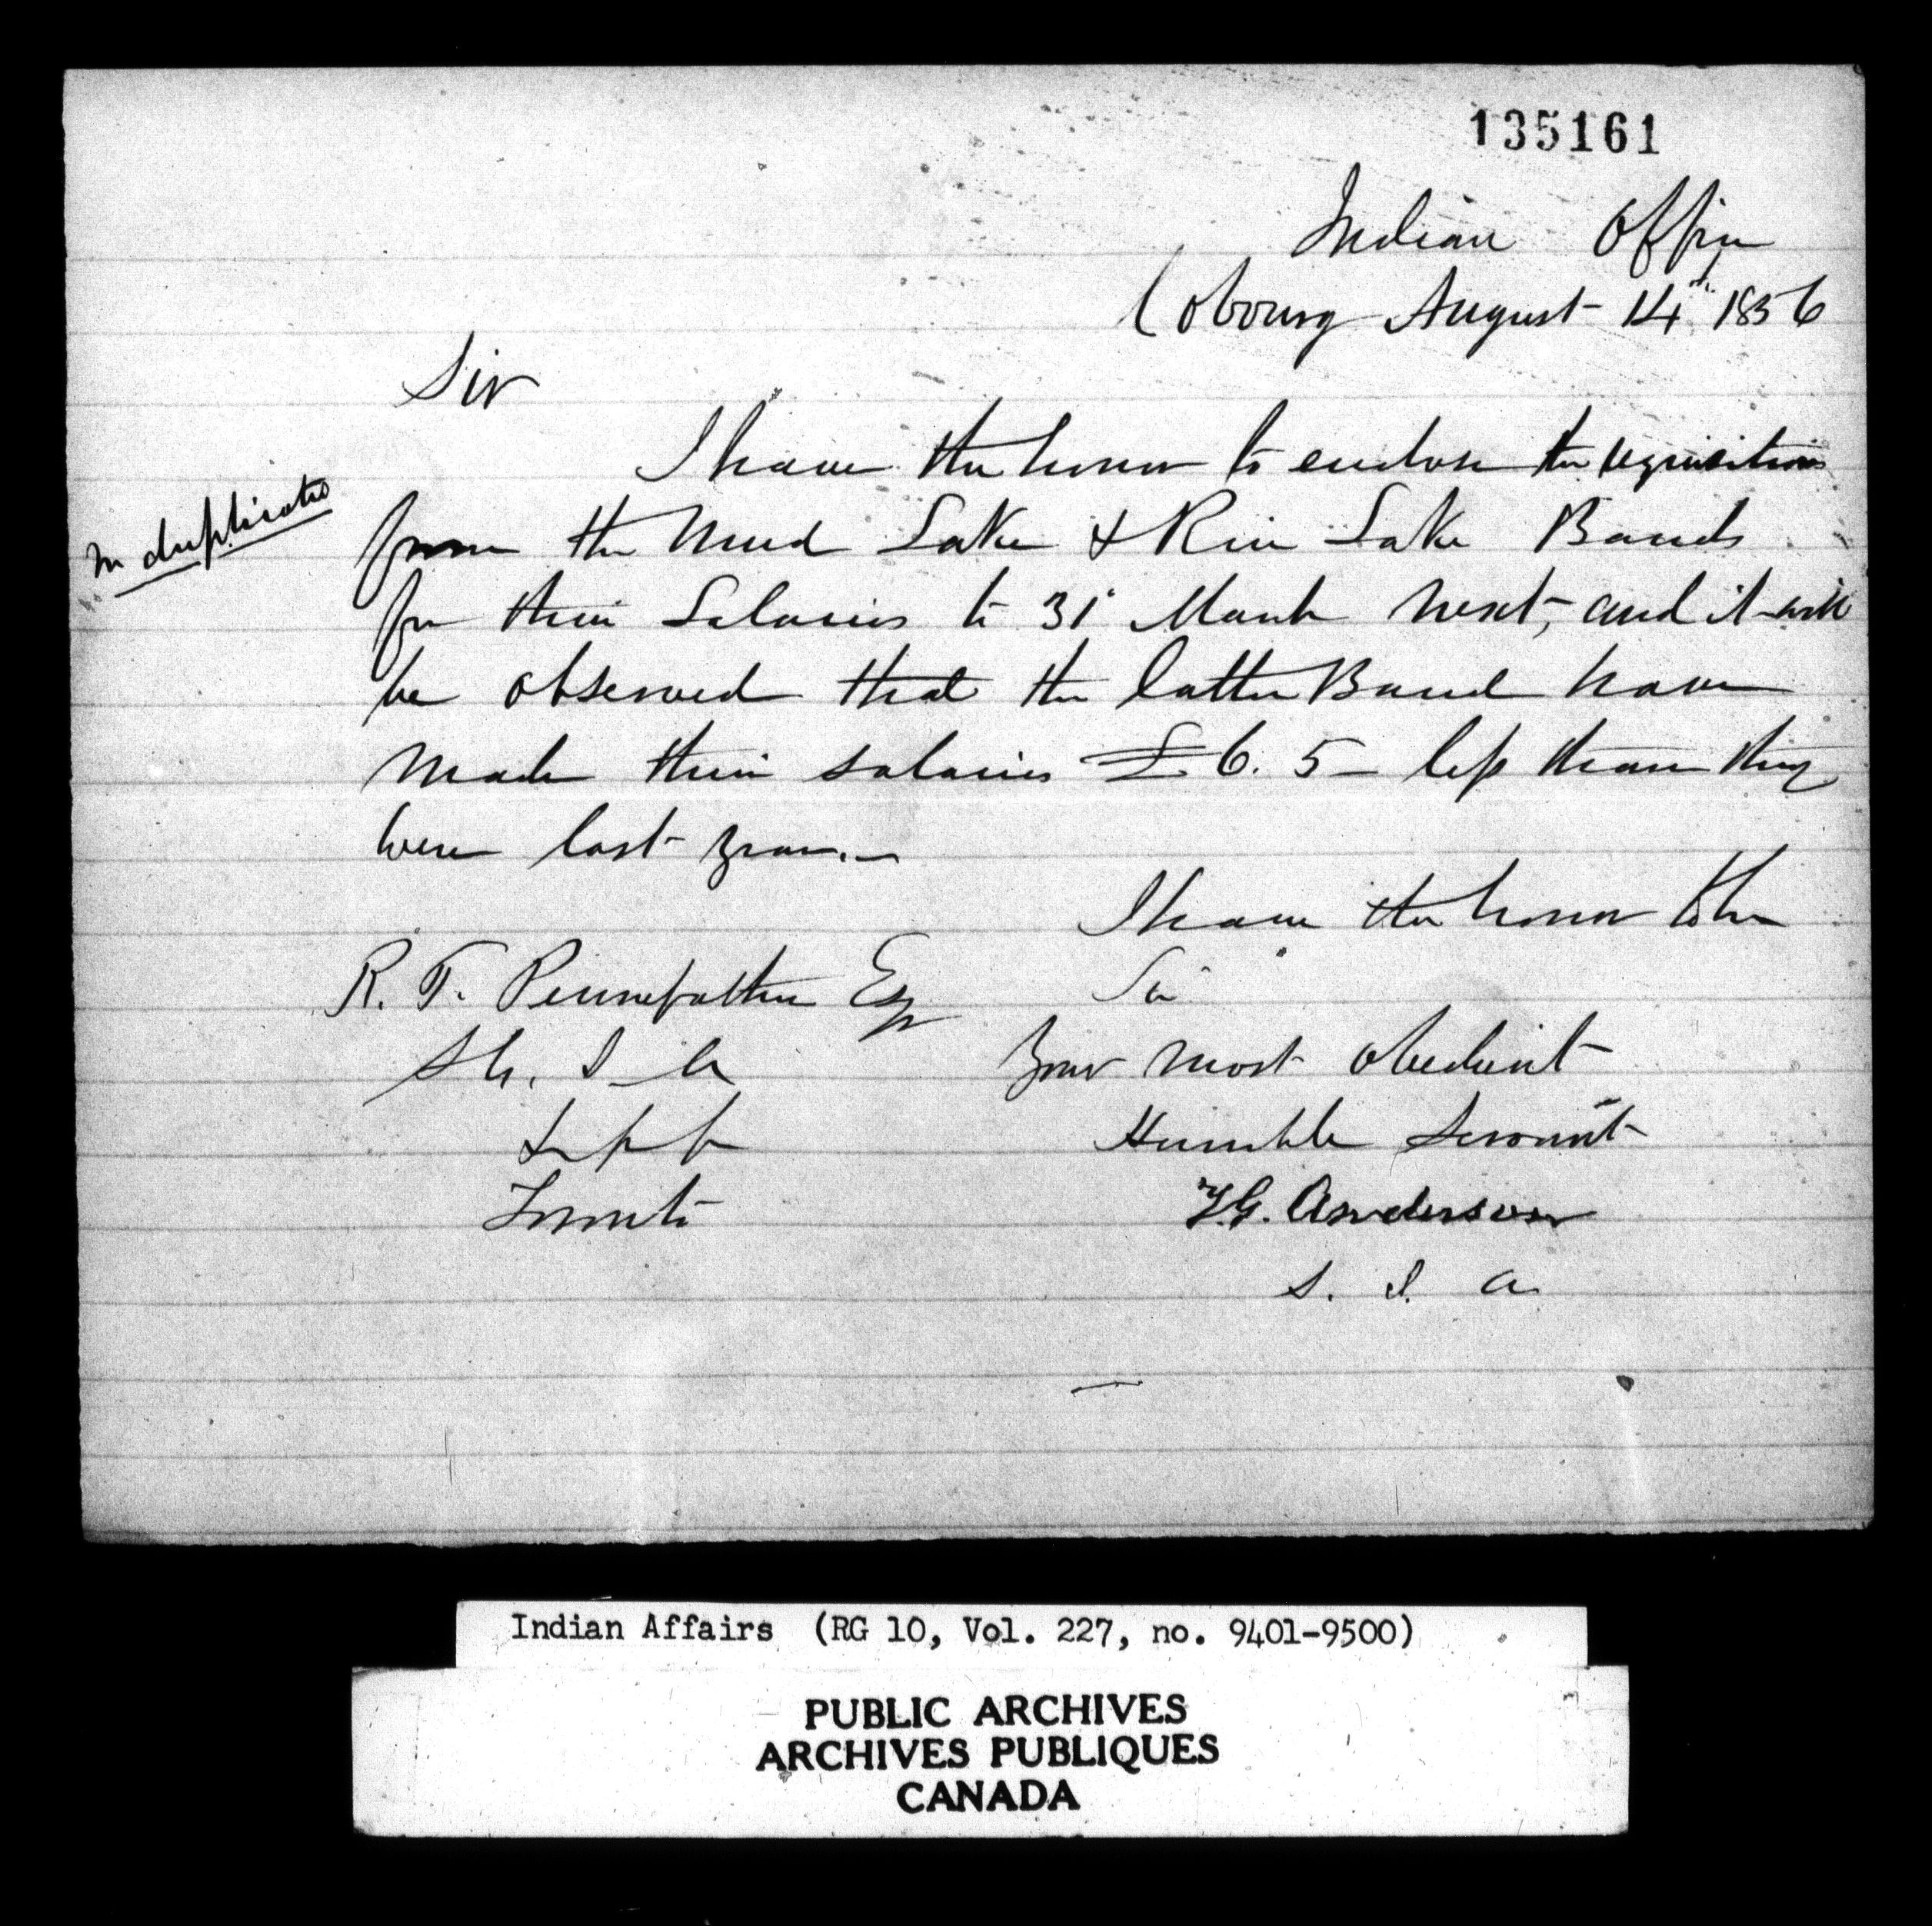 135161
Indian Office
Cobourg August 14th 1856
Sir
I have the honor to enclose the requisitions
in duplicate
from the Mud Lake & Rice Lake Bands
for their Salaries to 31t March next, and it will
be observed that the latter Band have
made their salaries £6. 5 – less than they
were last year. –
I have the honor to be
R. T. Pennefather Esq
Sir
S. I. A
Your most obedient
Humble Servant
Toronto
T.G. Anderson
S. I. A.
Indian Affairs (RG 10, Vol. 227, no. 9401-9500)
PUBLIC ARCHIVES
ARCHIVES PUBLIQUES
CANADA